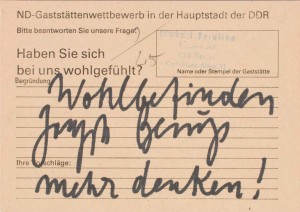 ND-Gaststättenwettbewerb in der Hauptstadt der DDR
Bitte beantworten Sie unsere Frage:
Haben Sie sich
bei uns wohlgefühlt?
Name oder Stempel der Gaststätte
Begründung:
Wohlbefinden
Joseph Beuys
Ihre Vorschläge:
mehr denken!